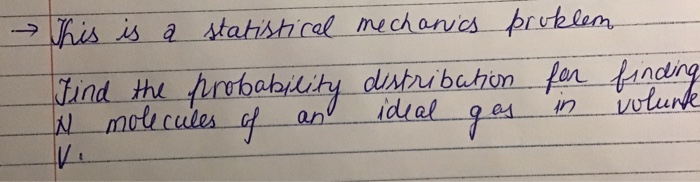 → This is a statistical mechanics problem
Find the probability distribution for finding
N molecules of an ideal gas in volume
V.